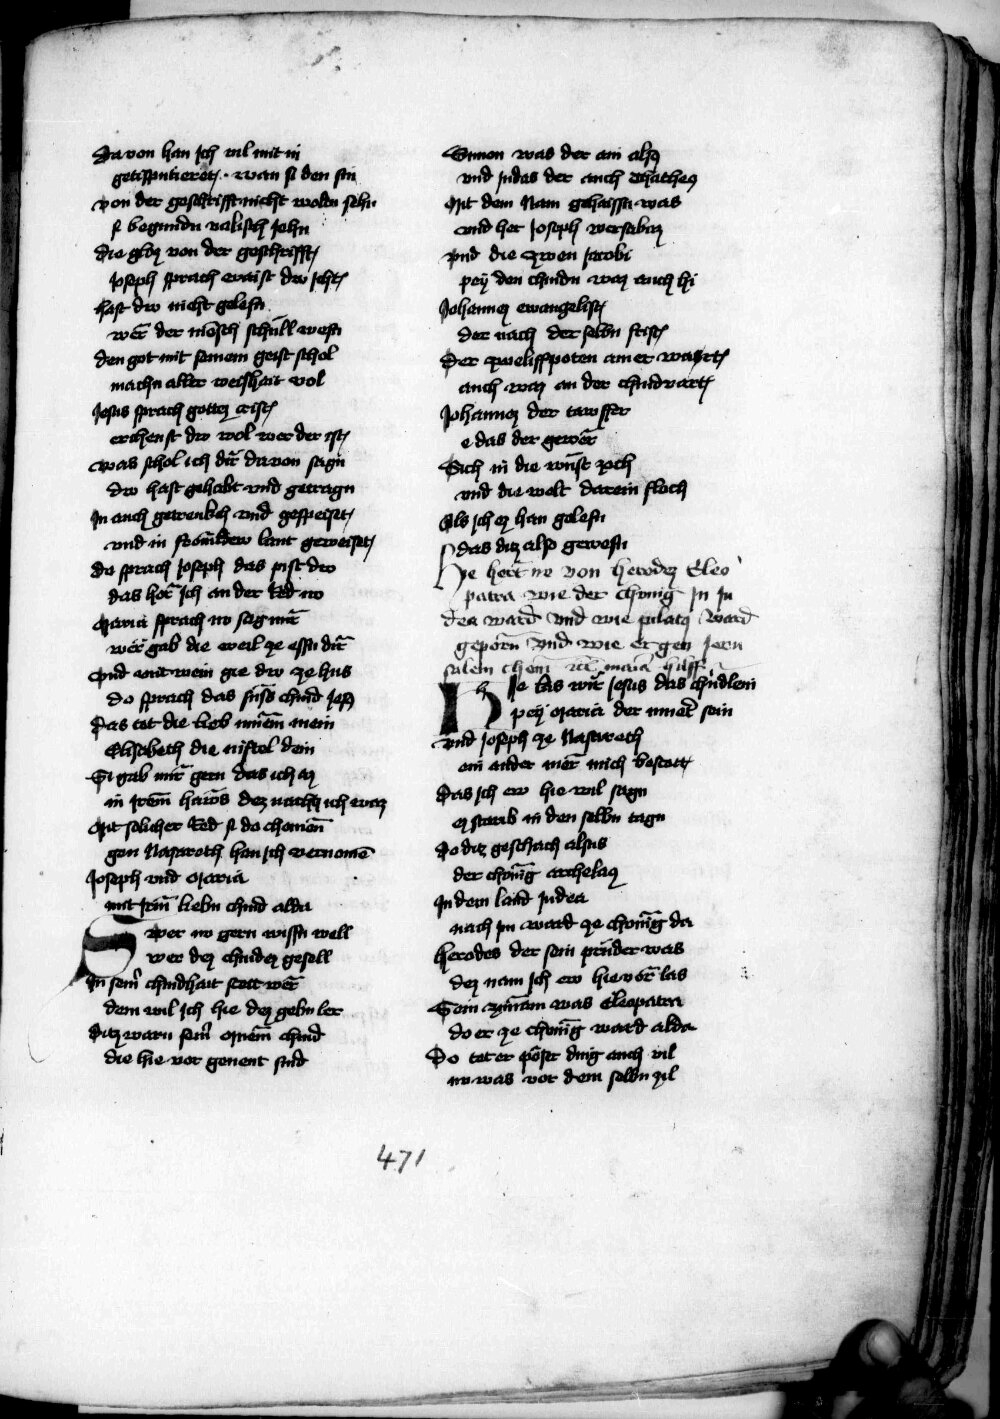 Da von han jch vil mit in
getisputieret. wan si den sin
von der geschrifft nicht woldn sehn
si begundn valisch jehn
die glos von der geschrifft
Joseph sprach waist dw icht
hast dw nicht gelesn
wer der mensch schull wesn
den got mit seinem geist schol
machn aller weishait vol
Jesus sprach gottes crist
erchenst dw wol wer der ist
was schol ich dir davon sagn
dw hast gehabt vnd getragn
Jn auch getrenkch vnd gespeiset
vnd in fromdew lant geweiset
do sprach Joseph das pist dw
das hor jch an der Red nw
Maria sprach nw sag mir
wer gab die weil ze essn dir
Vnd mit wem gie dw ze hus
do sprach das suss chind Jesus
Das tet die lieb mumen mein
Elisabeth die niftel dein
Si gab mir gern das ich as
in jrem haws dez nachtz ich was
Mit solicher Red si do chomen
gen Nazareth han jch vernomen
Joseph vnd Maria
mit jrm liebn chind alda
Swer nw gern wissn well
wer dez chindez gesell
Jn seinr chindhait stett wer
dem wil jch hie dez gebn ler
Ditz warn seinr Mumen chind
die hie vor genent sind
Simon was der ain also
vnd Judas der auch Matheus
Mit dem Nam gehaissn was
vnd her Joseph
vnd die zwen Jacobi
pey den chindn was auch hi
Johannes ewangelist
der nach der selbn frist
Der zwelifpoten ainer
auch was an der chindvart
Johannes der tawffer
e das der gewer
Sich in die wust zoch
vnd die welt darein floch
Als jch ez han gelesn
das ditz also gewesn
Hie hert nw von herodez Cleo
patra wie der Chonig jn Ju
dea ward vnd wie pilatus ward
geporn vnd wie er gen Jeru
salem chom maria hilff
Hie las wir Jesus das chindlein
pey Maria der mueter sein
vnd Joseph ze Nazareth
ain ander mer mich bestett
Das jch ew hie wil sagn
ez starib in den selbn tagn
Do ditz geschach alsus
der chonig archelaus
Jn dem land Judea
nach jm ward ze chonig da
herodes der sein prueder was
dez nam jch ew hie vor las
Sein zunam was Cleopatra
do er ze chonig ward alda
Do tet er poser ding auch vil
nw was vor dem selbn zil
471